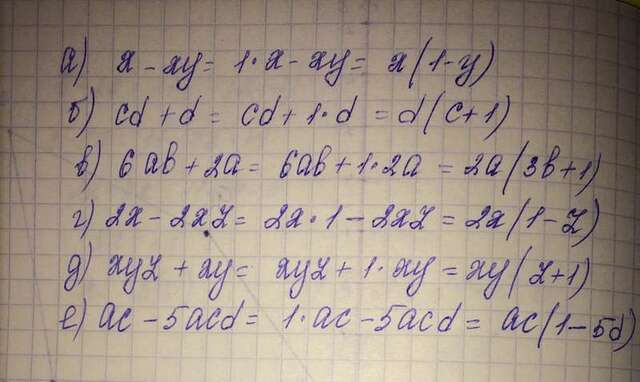 а) x - xy = 1·x - xy = x(1-y)
б) cd + d = cd + 1·d = d(c+1)
в) 6ab + 2a = 6ab + 1·2a = 2a(3b+1)
г) 2x - 2xz = 2x·1 - 2xz = 2x(1-z)
д) xyz + xy = xyz + 1·xy = xy(z+1)
е) ac - 5acd = 1·ac - 5acd = ac(1-5d)